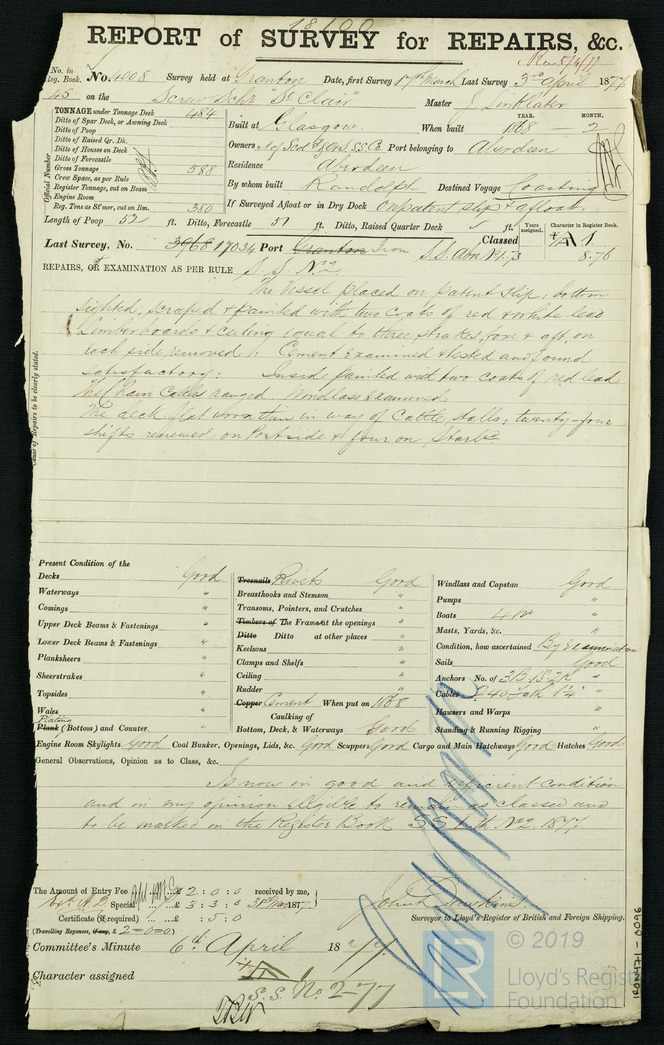 18100
REPORT of SURVEY for REPAIRS, &c.
No. in Reg. Book. No. 4008 Survey held at Granton Date, first Survey 17th March Last Survey 3rd April 1877
45 on the Screw Schr "St Clair" Master J. Sinklater
TONNAGE under Tonnage Deck 484
Ditto of Spar Deck, or Awning Deck
Ditto of Poop
Ditto of Raised Qr. Dk.
Ditto of Houses on Deck
Ditto of Forecastle
Gross Tonnage 588
Crew Space, as per Rule
Register Tonnage, out on Beam
Engine Room
Reg. Tons as St'mer, cut on Bm. 380
Official Number
Built at Glasgow When built YEAR. 1868 MONTH. 2
Owners Nof Scot & Ork SS Co Port belonging to Aberdeen
Residence Aberdeen
By whom built Randolph Destined Voyage Coasting
If Surveyed Afloat or in Dry Dock On patent slip & afloat
Length of Poop 52 ft. Ditto, Forecastle 51 ft. Ditto, Raised Quarter Deck ft.
Years assigned. Character in Register Book.
Last Survey, No. 3968 17034 Port Granton Iron S.S. Abn No1-73 Classed A1 8.76
REPAIRS, OR EXAMINATION AS PER RULE S. S. No 2
The Vessel placed on patent slip, bottom
sighted, scraped & painted with two coats of red & white lead
Limberboards & ceiling equal to three strakes fore & aft, on
each side removed & Cement Examined & tested and found
satisfactory: Inside painted with two coats of red lead
The Chain Cables ranged. Windlass Examined
The deck flat worn thin in way of Cattle stalls; twenty-four
shifts renewed on Port side & four on Starbd.
Cause of Repairs to be clearly stated.
Present Condition of the
Decks Good
Waterways "
Comings "
Upper Deck Beams & Fastenings "
Lower Deck Beams & Fastenings "
Planksheers "
Sheerstrakes "
Topsides "
Wales "
Plating
Plank (Bottom) and Counter "
Treenails Rivets Good
Breasthooks and Stemson "
Transoms, Pointers, and Crutches "
Timbers of The Frames at the openings "
Ditto Ditto at other places "
Keelsons "
Clamps and Shelfs "
Ceiling "
Rudder "
Copper Cement When put on 1868
Caulking of
Bottom, Deck, & Waterways Good
Windlass and Capstan Good
Pumps "
Boats 4 No "
Masts, Yards, &c. "
Condition, how ascertained By Examination
Sails Good
Anchors No. of 3B 1S 2K "
Cables "
Hawsers and Warps "
Standing & Running Rigging "
Engine Room Skylights Good Coal Bunker, Openings, Lids, &c. Good Scuppers Good Cargo and Main Hatchways Good Hatches Good
General Observations, Opinion as to Class, &c.
Is now in good and efficient condition
and in my opinion elegible to remain as classed and
to be marked in the Register Book S.S. Lth No2. 1877.
The Amount of Entry Fee £ 2 : 0 : 0 received by me,
Special £ 3 : 3 : 0 1877.
Certificate (if required) : 5 : 0
(Travelling Expenses, if any, £ 2=0=0)
Surveyor to Lloyd's Register of British and Foreign Shipping.
Committee's Minute 6th April 1877
Character assigned
S.S. No. 2-77
IRON471-0096
LR
© 2019
Lloyd's Register
Foundation